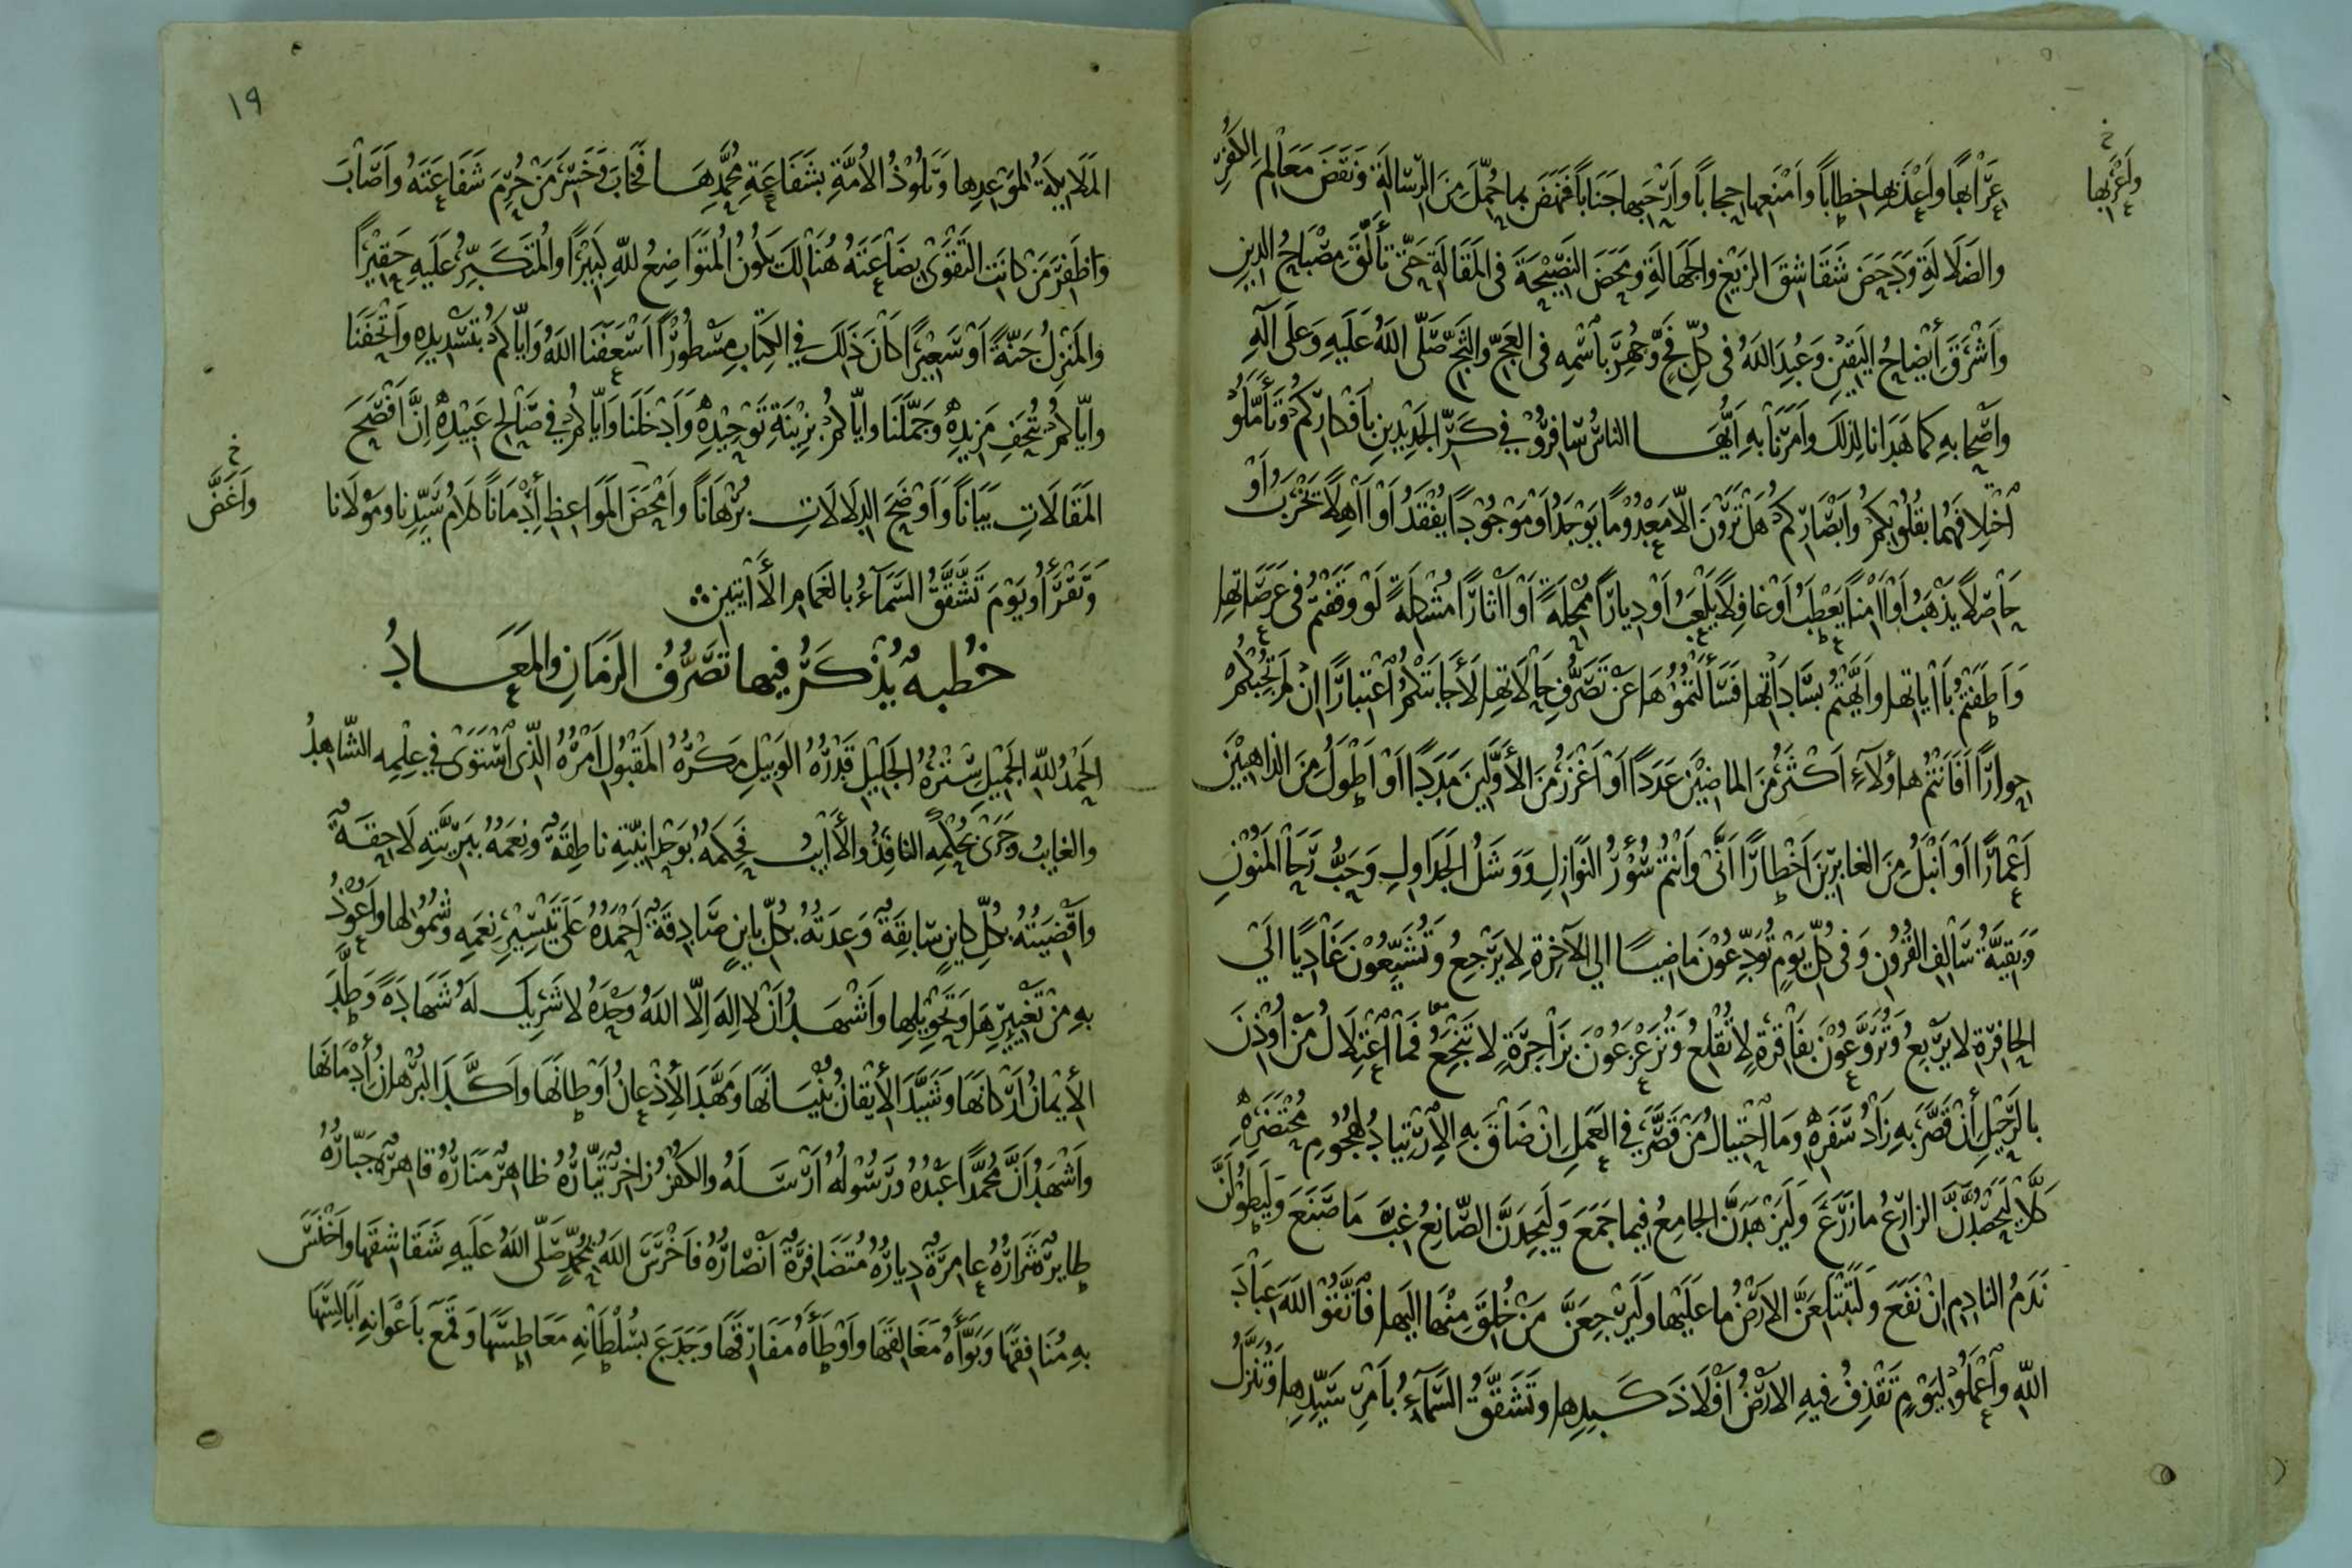 وَأَعْرَبِهَا
خ
عِرَابِهَا وَأَعْذَبِهَا خِطَابًا وَأَمْنَعِهَا حِجَابًا وَأَرْحَبِهَا جَنَابًا فَنَهَضَ بِمَا حُمِّلَ مِنَ الرِّسَالَةِ وَنَقَضَ مَعَالِمَ الكُفْرِ
وَالضَّلَالَةِ وَدَحَضَ شَقَاشِقَ الزَّيْغِ وَالجَهَالَةِ وَمَحَضَ النَّصِيحَةَ فِي المَقَالَةِ حَتَّى تَأَلَّقَ مِصْبَاحُ الدِّينِ
وَأَشْرَقَ أَيْضَاحُ اليَقِينِ وَعُبِدَ اللهُ فِي كُلِّ فَجٍّ وَجُهِرَ بِاسْمِهِ فِي العَجِّ وَالثَّجِّ صَلَّى اللهُ عَلَيْهِ وَعَلَى آلِهِ
وَأَصْحَابِهِ كَمَا هَدَانَا لِذَلِكَ وَأَمَرَنَا بِهِ أَيُّهَا النَّاسُ سَافِرُوا فِي كَرِّ الجَدِيدَيْنِ بِأَفْكَارِكُمْ وَتَأَمَّلُوا
اخْتِلَافَهُمَا بِقُلُوبِكُمْ وَأَبْصَارِكُمْ هَلْ تَرَوْنَ إِلَّا مَعْدُومًا يُوجَدُ أَوْ مَوْجُودًا يُفْقَدُ أَوْ آهِلًا يَخْرَبُ أَوْ
حَاصِلًا يَذْهَبُ أَوْ آمِنًا يَعْطَبُ أَوْ غَافِلًا يَلْعَبُ أَوْ دِيَارًا مُمْحِلَةً أَوْ آثَارًا مُشْكِلَةً لَوْ وَقَفْتُمْ فِي عَرَصَاتِهَا
وَأَطَفْتُمْ بِآيَاتِهَا وَأَيَّهْتُمْ بِسَادَاتِهَا فَسَأَلْتُمُوهَا عَنْ تَصَرُّفِ حَالَاتِهَا لَأَجَابَتْكُمُ اعْتِبَارًا إِنْ لَمْ تُجِبْكُمْ
حِوَارًا أَفَأَنْتُمْ هَاؤُلَاءِ أَكْثَرُ مِنَ المَاضِينَ عَدَدًا أَوْ أَغْزَرُ مِنَ الأَوَّلِينَ مَدَدًا أَوْ أَطْوَلُ مِنَ الذَّاهِبِينَ
أَعْمَارًا أَوْ أَنْبَلُ مِنَ الغَابِرِينَ أَخْطَارًا أَنَّى وَأَنْتُمْ سُؤْرُ النَّوَازِلِ وَوَشَلُ الجَدَاوِلِ وَحَبُّ رَحَا المَنُونِ
وَبَقِيَّةُ سَالِفِ القُرُونِ وَفِي كُلِّ يَوْمٍ تُوَدِّعُونَ مَاضِيًا إِلَى الآخِرَةِ لَا يَرْجِعُ وَتُشَيِّعُونَ غَادِيًا إِلَى
الحَافِرَةِ لَا يَرْبَعُ وَتُرَوَّعُونَ بِفَاقِرَةٍ لَا تُقْلِعُ وَتُزَعْزَعُونَ بِزَاجِرَةٍ لَا تَنْجَعُ فَمَا اعْتِلَالُ مَنْ أُوذِنَ
بِالرَّحِيلِ أَنْ قَصَّرَ بِهِ زَادُ سَفَرِهِ وَمَا احْتِيَالُ مَنْ قَصَّرَ فِي العَمَلِ إِنْ ضَاقَ بِهِ الارْتِيَادُ لِهُجُومِ مُحْتَضَرِهِ
كَلَّا لَيَحْصُدَنَّ الزَّارِعُ مَا زَرَعَ وَلَيَزْهَدَنَّ الجَامِعُ فِيمَا جَمَعَ وَلَيَجِدَنَّ الصَّانِعُ غِبَّ مَا صَنَعَ وَلَيَطُولَنَّ
نَدَمُ النَّادِمِ إِنْ نَفَعَ وَلَتَبْتَلِعَنَّ الأَرْضُ مَا عَلَيْهَا وَلَيَرْجِعَنَّ مَنْ خُلِقَ مِنْهَا إِلَيْهَا فَاتَّقُوا اللهَ عِبَادَ
اللهِ وَاعْمَلُوا لِيَوْمٍ تَقْذِفُ فِيهِ الأَرْضُ أَفْلَاذَ كَبِدِهَا وَتَشَقَّقُ السَّمَاءُ بِأَمْرِ سَيِّدِهَا وَتُنَزَّلُ
١٩
المَلَائِكَةُ لِمَوْعِدِهَا وَتَلُوذُ الأُمَّةُ بِشَفَاعَةِ مُحَمَّدِهَا فَخَابَ وَخَسِرَ مَنْ حُرِمَ شَفَاعَتَهُ وَأَصَابَ
وَظَفِرَ مَنْ كَانَتِ التَّقْوَى بِضَاعَتَهُ هُنَالِكَ يَكُونُ المُتَوَاضِعُ لِلَّهِ كَبِيرًا وَالمُتَكَبِّرُ عَلَيْهِ حَقِيرًا
وَالمَنْزِلُ جَنَّةً أَوْ سَعِيرًا كَانَ ذَلِكَ فِي الكِتَابِ مَسْطُورًا أَسْعَفَنَا اللهُ وَإِيَّاكُمْ بِتَسْدِيدِهِ وَأَتْحَفَنَا
وَإِيَّاكُمْ بِتُحَفِ مَزِيدِهِ وَجَمَّلَنَا وَإِيَّاكُمْ بِزِينَةِ تَوْحِيدِهِ وَأَدْخَلَنَا وَإِيَّاكُمْ فِي صَالِحِ عَبِيدِهِ إِنَّ أَفْصَحَ
خ
وَأَغَضَّ
المَقَالَاتِ بَيَانًا وَأَوْضَحَ الدِّلَالَاتِ بُرْهَانًا وَأَمْحَضَ المَوَاعِظِ أَدْمَانًا كَلَامُ سَيِّدِنَا وَمَوْلَانَا
وَتَقْرَأُ وَيَوْمَ تَشَقَّقُ السَّمَاءُ بِالغَمَامِ الأَآيَتَيْنِ
خُطْبَةٌ يُذْكَرُ فِيهَا تَصَرُّفُ الزَّمَانِ وَالمَعَادُ
الحَمْدُ لِلَّهِ الجَمِيلِ سِتْرُهُ الجَلِيلِ قَدْرُهُ الوَبِيلِ مَكْرُهُ المَقْبُولِ أَمْرُهُ الَّذِي اسْتَوَى فِي عِلْمِهِ الشَّاهِدُ
وَالغَايِبُ وَجَرَى بِحُكْمِهِ النَّافِذُ وَالآيِبُ فَحِكَمُهُ بِوَحْدَانِيَّتِهِ نَاطِقَةٌ وَنِعَمُهُ بِبَرِيَّتِهِ لَاحِقَةٌ
وَأَقْضِيَتُهُ بِكُلِّ كَايِنٍ سَابِقَةٌ وَعِدَتُهُ بِكُلِّ بَايِنٍ صَادِقَةٌ أَحْمَدُهُ عَلَى تَيْسِيرِ نِعَمِهِ وَشُمُولِهَا وَأَعُوذُ
بِهِ مِنْ تَغْيِيرِهَا وَتَحْوِيلِهَا وَأَشْهَدُ أَنْ لَا إِلَهَ إِلَّا اللهُ وَحْدَهُ لَا شَرِيكَ لَهُ شَهَادَةً وَطَّدَ
الأِيمَانُ أَرْكَانَهَا وَشَيَّدَ الأِيْقَانُ بُنْيَانَهَا وَمَهَّدَ الأِذْعَانُ أَوْطَانَهَا وَأَكَّدَ البُرْهَانُ أَدْمَانَهَا
وَأَشْهَدُ أَنَّ مُحَمَّدًا عَبْدُهُ وَرَسُولُهُ أَرْسَلَهُ وَالكُفْرُ زَاخِرٌ تَيَّارُهُ ظَاهِرٌ مَنَارُهُ قَاهِرٌ جَبَّارُهُ
طَايِرٌ شَرَارُهُ عَامِرَةٌ دِيَارُهُ مُتَضَافِرَةٌ أَنْصَارُهُ فَأَخْرَسَ اللهُ بِمُحَمَّدٍ صَلَّى اللهُ عَلَيْهِ شَقَاشِقَهَا وَأَخْلَسَ
بِهِ مُنَافِقَهَا وَبَوَّأَهُ مَغَالِقَهَا وَأَوْطَأَهُ مَفَارِقَهَا وَجَدَعَ بِسُلْطَانِهِ مَعَاطِسَهَا وَقَمَعَ بِأَعْوَانِهِ أَبَالِسَهَا